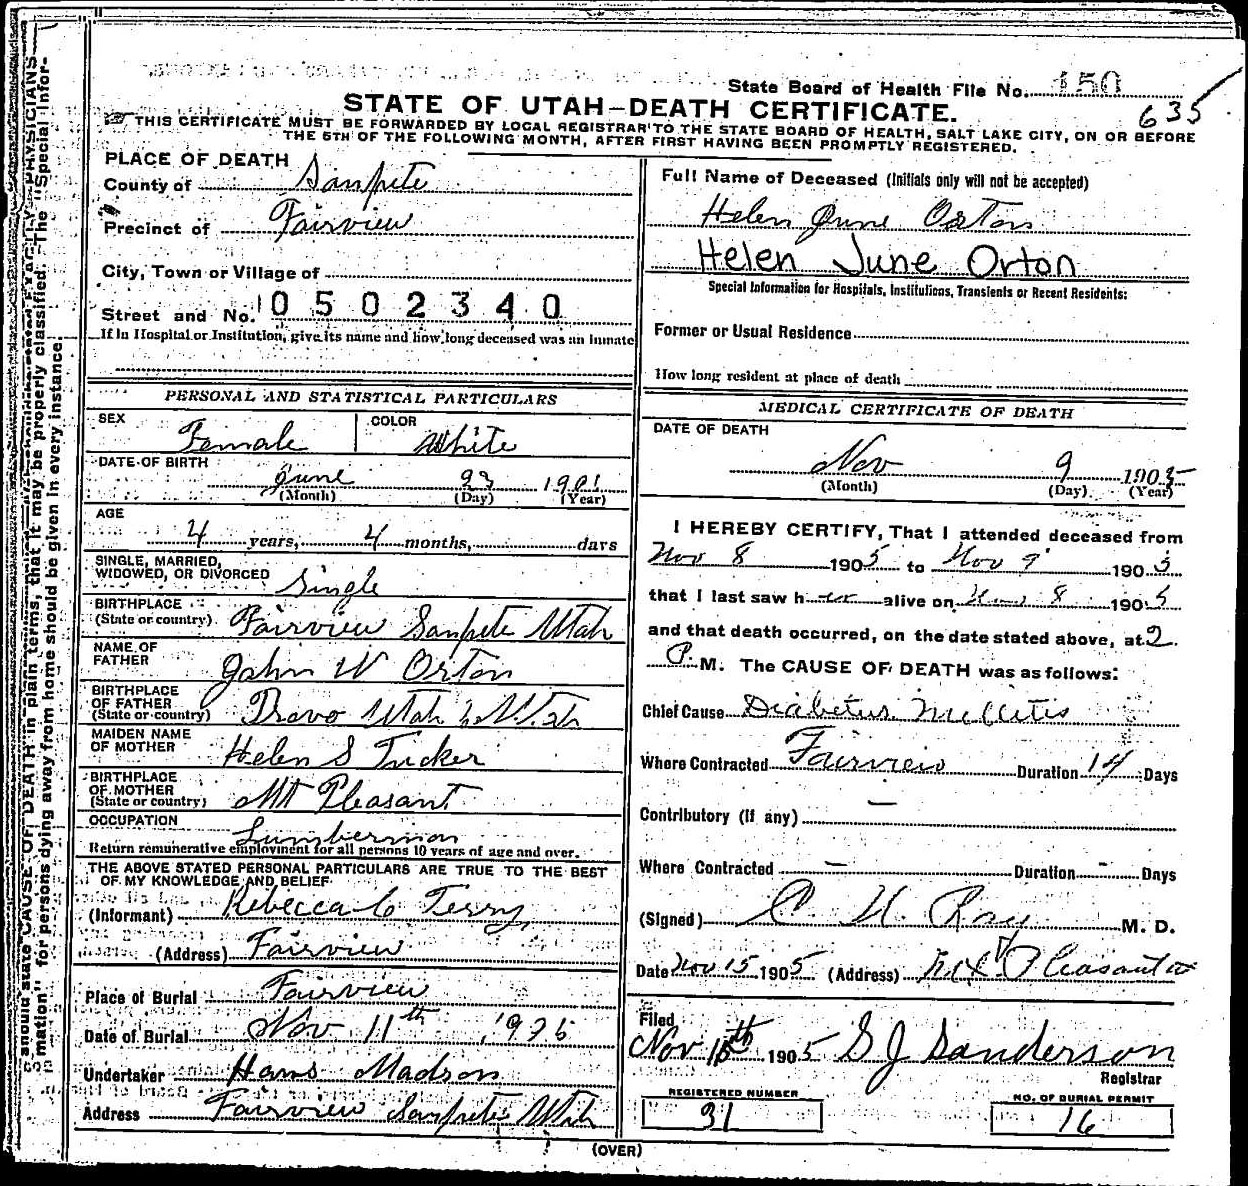 State Board of Health File No. 150
635
STATE OF UTAH—DEATH CERTIFICATE.
THIS CERTIFICATE MUST BE FORWARDED BY LOCAL REGISTRAR TO THE STATE BOARD OF HEALTH, SALT LAKE CITY, ON OR BEFORE
THE 5TH OF THE FOLLOWING MONTH, AFTER FIRST HAVING BEEN PROMPTLY REGISTERED.
PLACE OF DEATH
County of Sanpete
Precinct of Fairview
City, Town or Village of
Street and No. 0502340
If In Hospital or Institution, give its name and how long deceased was an Inmate
Full Name of Deceased (Initials only will not be accepted)
Helen June Orton
Helen June Orton
Special Information for Hospitals, Institutions, Transients or Recent Residents:
Former or Usual Residence
How long resident at place of death
PERSONAL AND STATISTICAL PARTICULARS
SEX Female COLOR White
DATE OF BIRTH June 23 1901
(Month) (Day) (Year)
AGE
4 years, 4 months, days
SINGLE, MARRIED,
WIDOWED, OR DIVORCED Single
BIRTHPLACE
(State or country) Fairview Sanpete Utah
NAME OF
FATHER John W Orton
BIRTHPLACE
OF FATHER
(State or country) Provo Utah
MAIDEN NAME
OF MOTHER Helen S Tucker
BIRTHPLACE
OF MOTHER
(State or country) Mt Pleasant
OCCUPATION Lumberman
Return remunerative employment for all persons 10 years of age and over.
THE ABOVE STATED PERSONAL PARTICULARS ARE TRUE TO THE BEST
OF MY KNOWLEDGE AND BELIEF
(Informant) Rebecca C Terry
(Address) Fairview
Place of Burial Fairview
Date of Burial Nov 11th, 1905
Undertaker Hans Madson
Address Fairview Sanpete Utah
MEDICAL CERTIFICATE OF DEATH
DATE OF DEATH
Nov 9 1905
(Month) (Day) (Year)
I HEREBY CERTIFY, That I attended deceased from
Nov 8 1905 to Nov 9 1905
that I last saw her alive on Nov 8 1905
and that death occurred, on the date stated above, at 2
P. M. The CAUSE OF DEATH was as follows:
Chief Cause Diabetus Mellitis
Where Contracted Fairview Duration 14 Days
Contributory (if any) —
Where Contracted — Duration - Days
(Signed) M. D.
Date Nov 15 1905 (Address) Mt Pleasant
Filed
Nov 1905 S J Sanderson
Registrar
REGISTERED NUMBER
31
NO. OF BURIAL PERMIT
16
(OVER)
should state CAUSE OF DEATH in plain terms, that it may be properly classified. The "Special Infor-
mation" for persons dying away from home should be given in every instance.